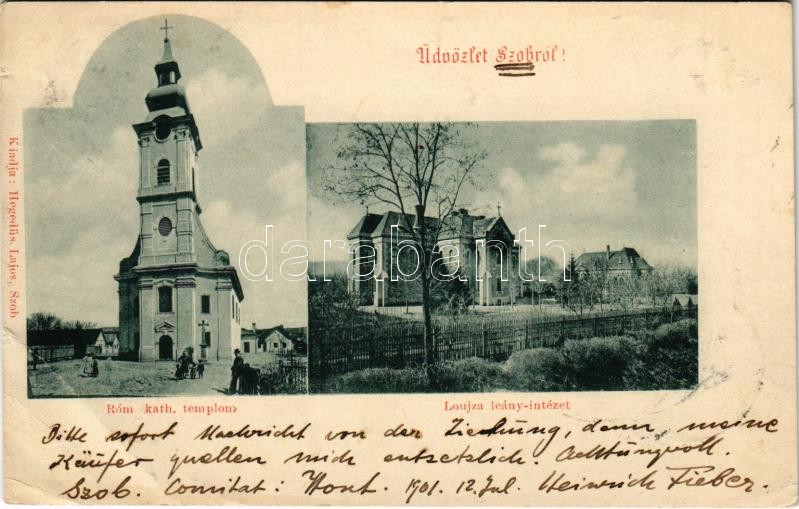 Üdvözlet Szobról!
Kiadja: Hegedűs Lajos, Szob
darabanth
Róm kath. templom
Loujza leány-intézet
Bitte sofort Nachricht von der Ziehung, denn meine
Käufer quellen mich entsetzlich. Achtungvoll.
Szob. Comitat: Hont. 1901. 12. Jul. Heinrich Fieber.